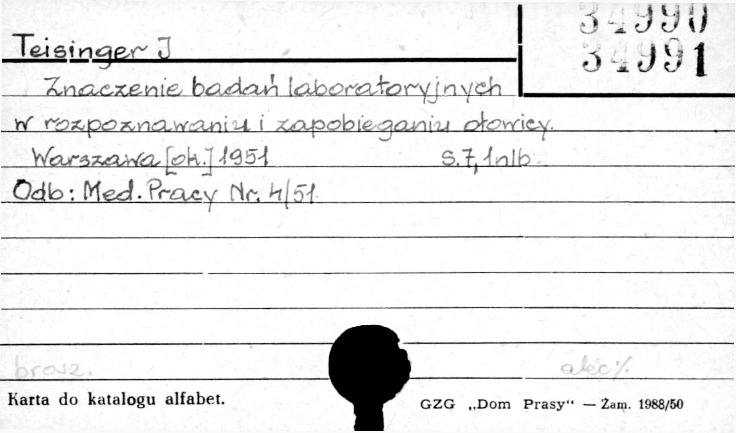 34990
34991
Teisinger J
Znaczenie badań laboratoryjnych
w rozpoznawaniu i zapobieganiu ołowicy.
Warszawa [ok.] 1951 s. 7, 1 nlb
Odb: Med. Pracy Nr. 4/51
brosz.
Karta do katalogu alfabet.
GZG „Dom Prasy“ — Zam. 1988/50